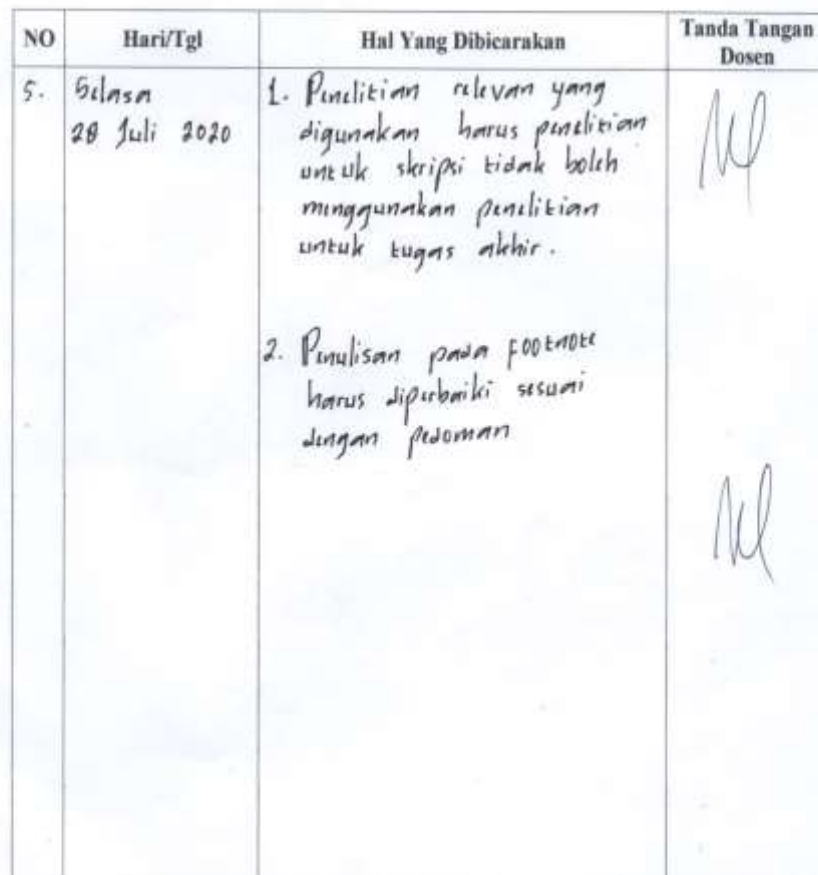 NO Hari/Tgl Hal Yang Dibicarakan Tanda Tangan Dosen
5. Selasa
28 Juli 2020
1. Penelitian relevan yang
digunakan harus penelitian
untuk skripsi tidak boleh
menggunakan penelitian
untuk tugas akhir.
2. Penulisan pada footnote
harus diperbaiki sesuai
dengan pedoman